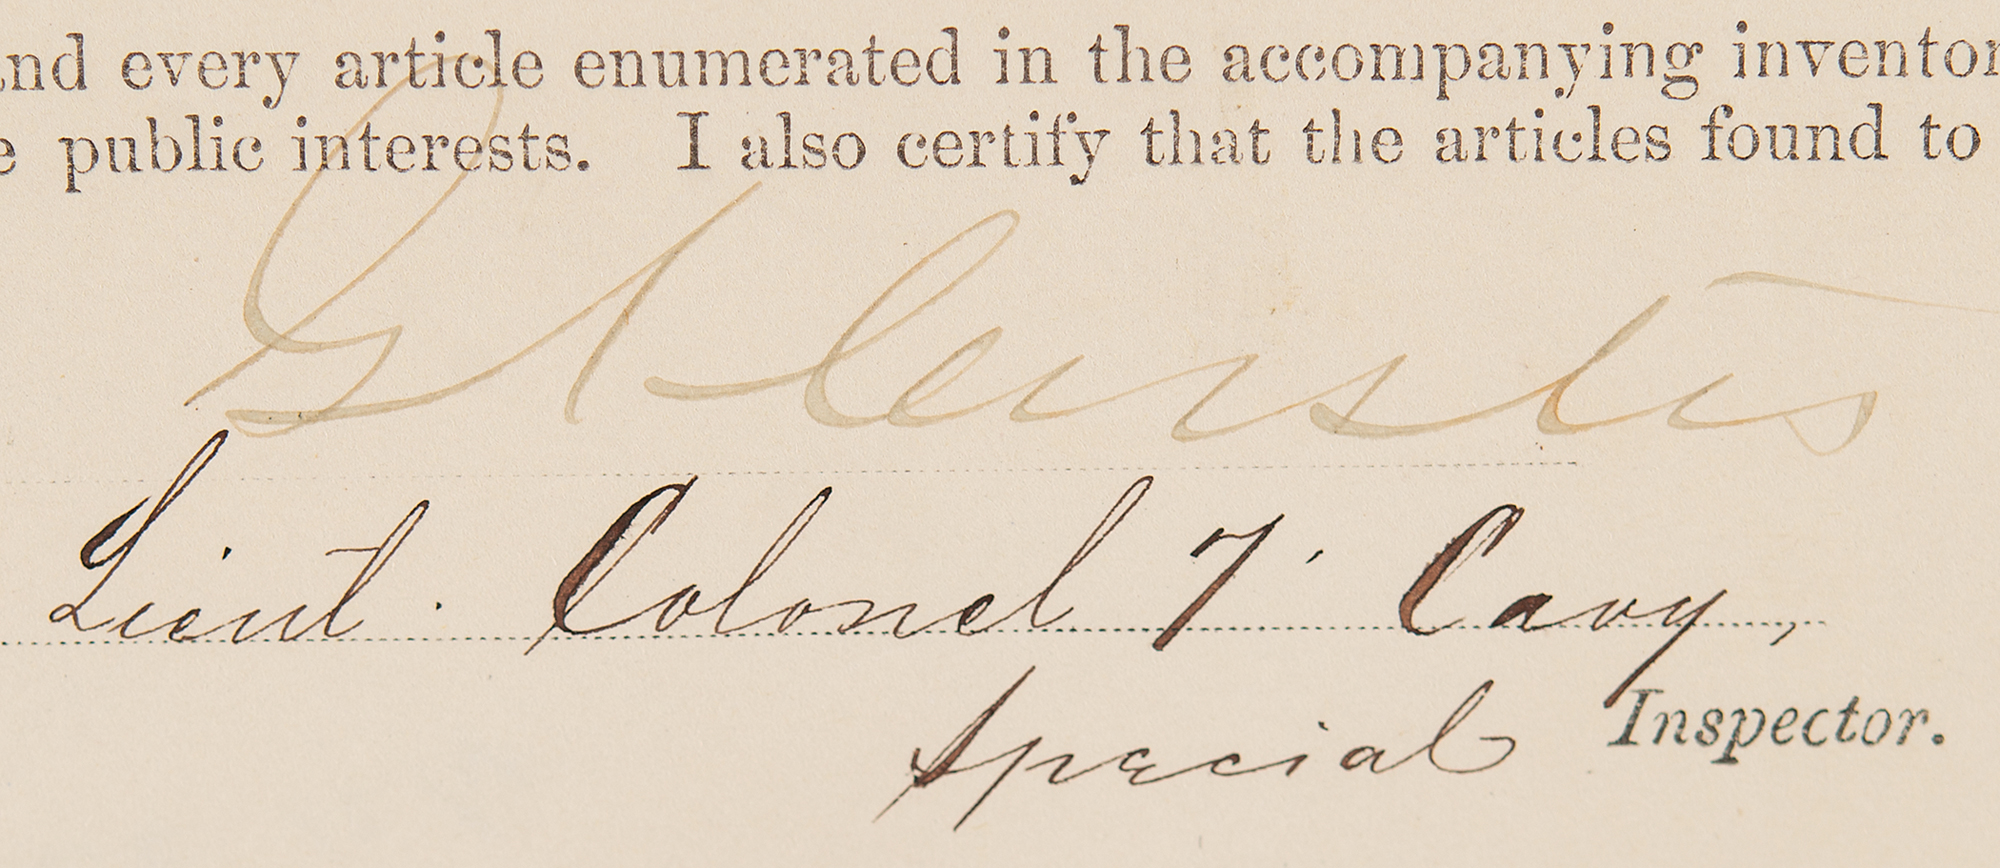 nd every article enumerated in the accompanying inventor
e public interests. I also certify that the articles found to
G A Custer
Lieut. Colonel 7' Cavy,
Special Inspector.